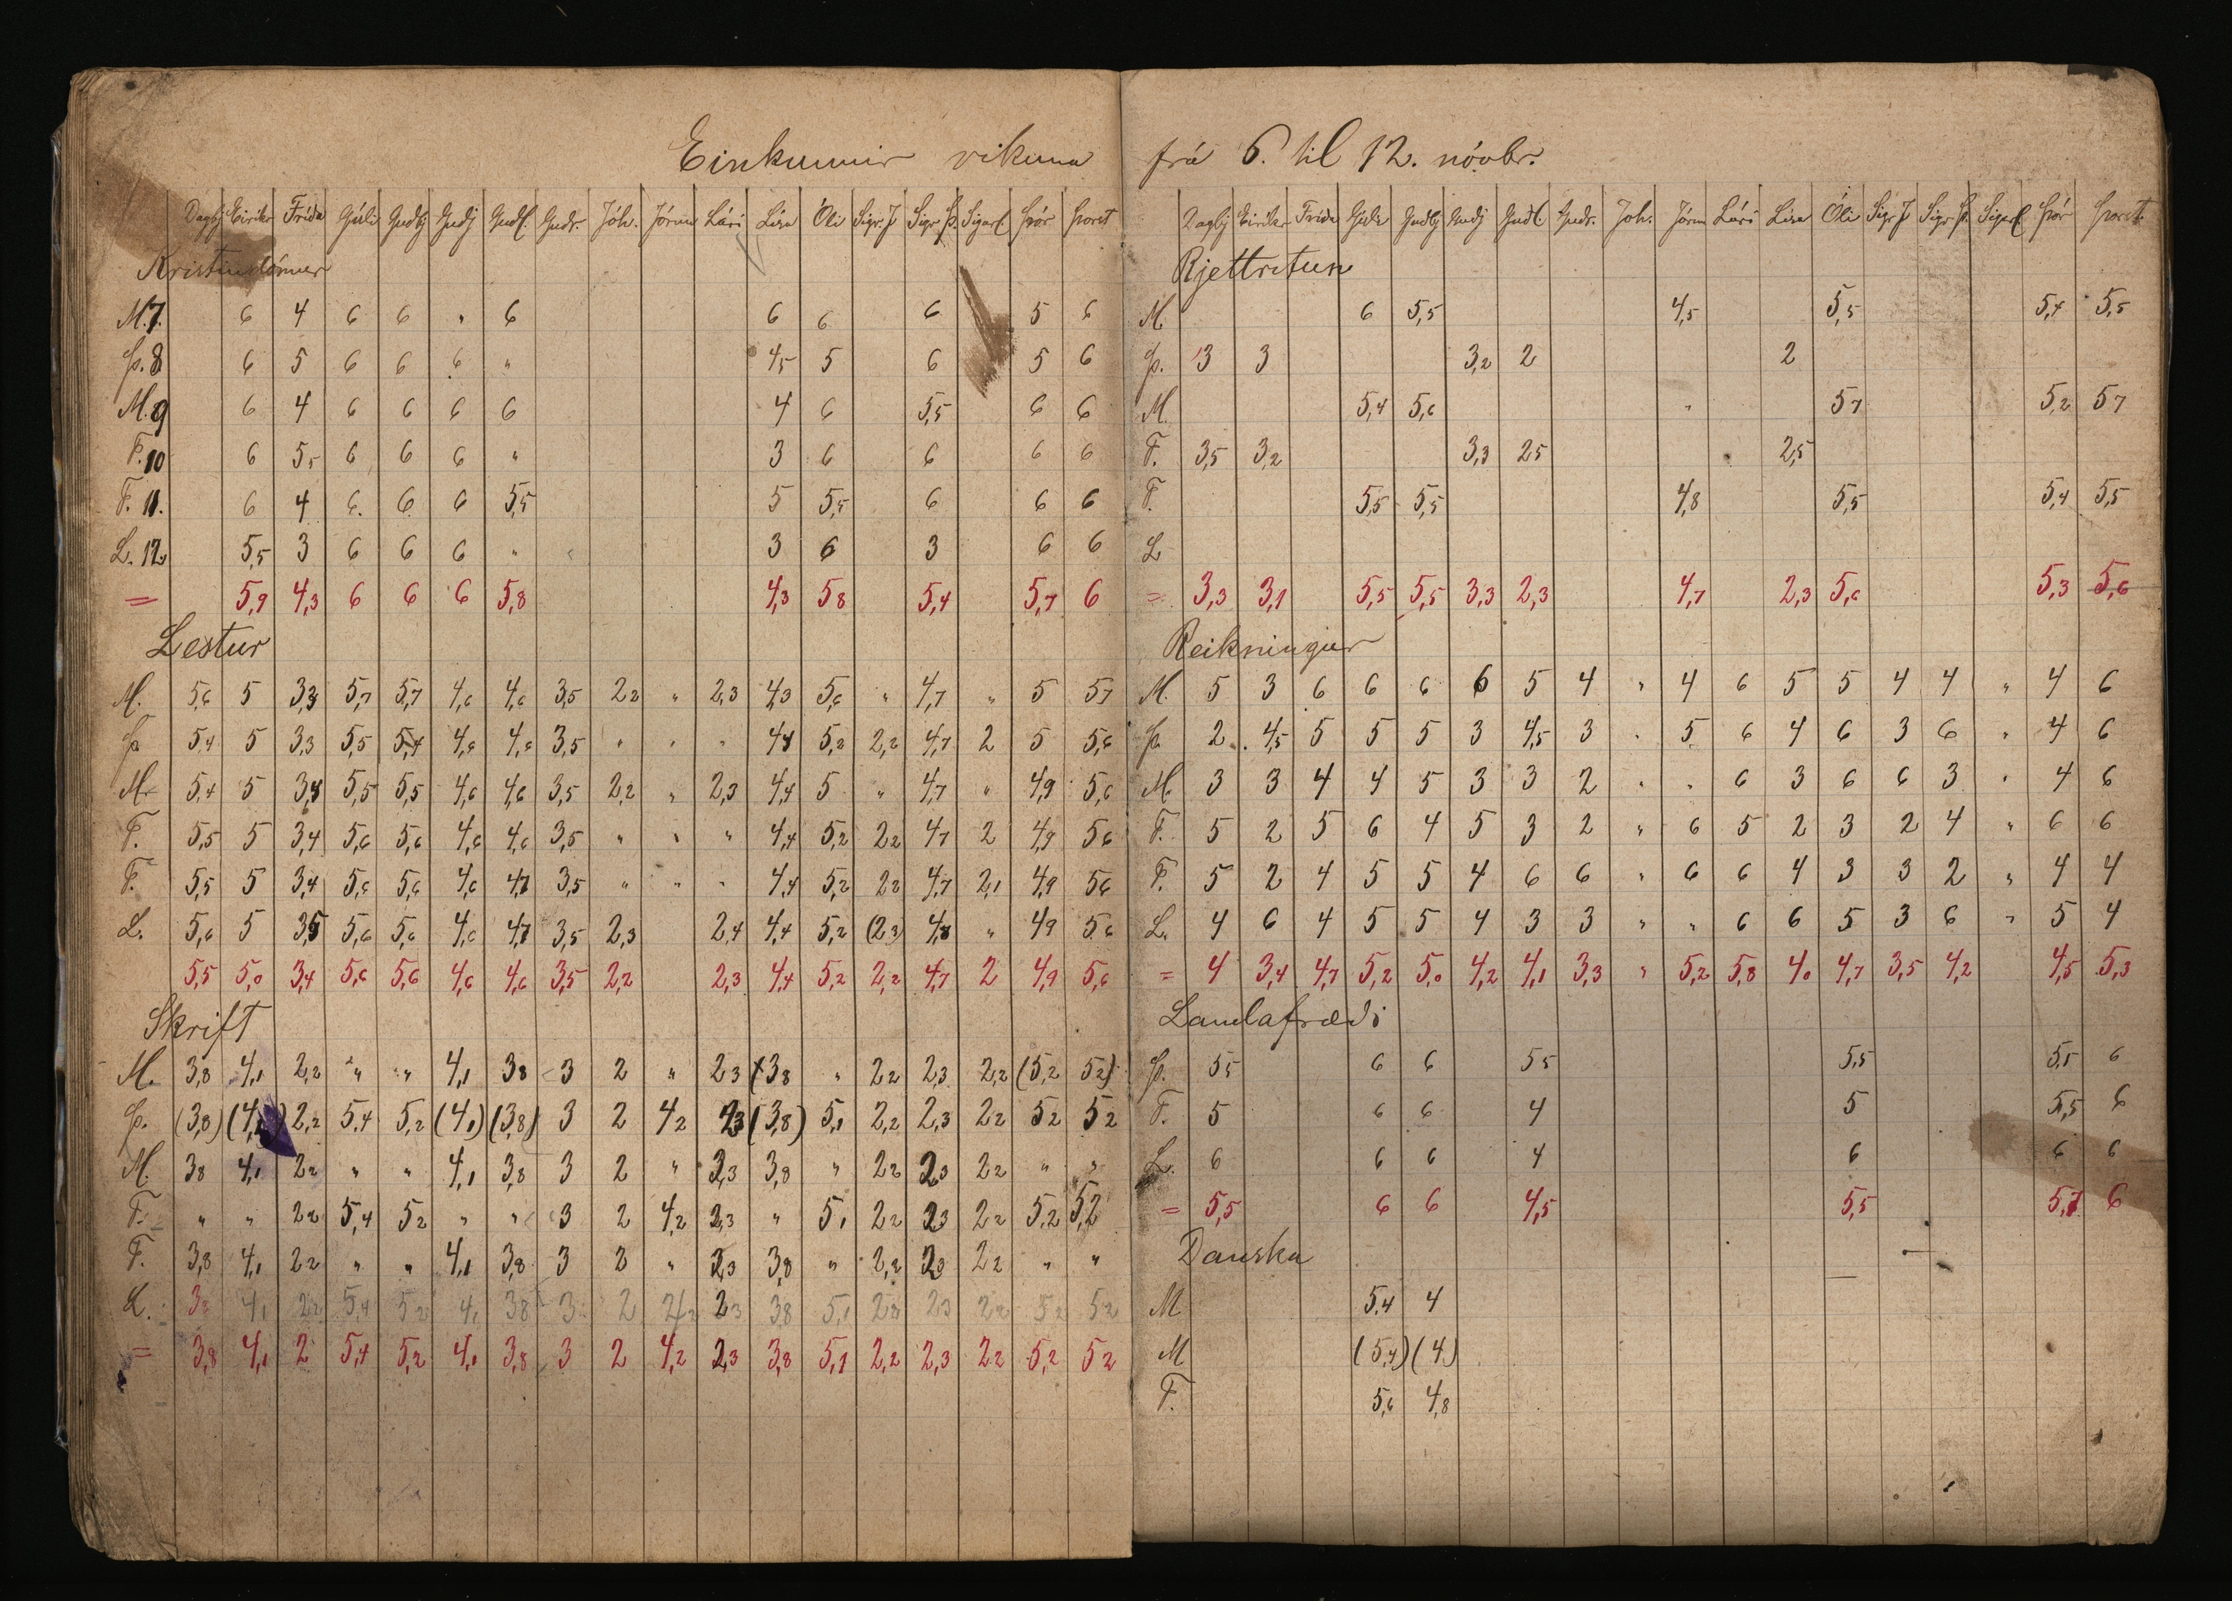 Einkunnir vikuna
Dagbj Eirikr Frida Gisli Gudbj Gudj Gudl. Gudr. Jóh. Jórun Lári Lísa Óli Sigr. J Sigr. Þ. Sigurl Þór Þorst
Kristindómur
M. 7. 6 4 6 6 " 6 6 6 6 5 6
Þ. 8 6 5 6 6 6 " 4,5 5 6 5 6
M. 9 6 4 6 6 6 6 4 6 5,5 6 6
F. 10 6 5,5 6 6 6 " 3 6 6 6 6
F. 11. 6 4 6. 6 6 5,5 5 5,5 6 6 6
L. 12 5,5 3 6 6 6 " 3 6 3 6 6
= 5,9 4,3 6 6 6 5,8 4,3 5,8 5,4 5,7 6
Lestur
M. 5,6 5 3,3 5,7 5,7 4,6 4,6 3,5 2,2 " 2,3 4,3 5,6 " 4,7 " 5 5,7
Þ 5,4 5 3,3 5,5 5,4 4,6 4,6 3,5 " " " 4,4 5,2 2,2 4,7 2 5 5,6
M. 5,4 5 3,4 5,5 5,5 4,6 4,6 3,5 2,2 " 2,3 4,4 5 " 4,7 " 4,9 5,6
F. 5,5 5 3,4 5,6 5,6 4,6 4,6 3,5 " " " 4,4 5,2 2,2 4,7 2 4,9 5,6
F. 5,5 5 3,4 5,6 5,6 4,6 4,7 3,5 " " " 4,4 5,2 2,2 4,7 2,1 4,9 5,6
L. 5,6 5 3,5 5,6 5,6 4,6 4,7 3,5 2,3 2,4 4,4 5,2 (2,3) 4,8 " 4,9 5,6
5,5 5,0 3,4 5,6 5,6 4,6 4,6 3,5 2,2 2,3 4,4 5,2 2,2 4,7 2 4,9 5,6
Skrift
M. 3,8 4,1 2,2 " " 4,1 3,8 3 2 " 2,3 3,8 " 2,2 2,3 2,2 (5,2 5,2)
Þ. (3,8) (4,1) 2,2 5,4 5,2 (4,1) (3,8) 3 2 4,2 2,3 (3,8) 5,1 2,2 2,3 2,2 5,2 5,2
M. 3,8 4,1 2,2 " " 4,1 3,8 3 2 " 2,3 3,8 " 2,2 2,3 2,2 " "
F. " " 2,2 5,4 5,2 " " 3 2 4,2 2,3 " 5,1 2,2 2,3 2,2 5,2 5,2
F. 3,8 4,1 2,2 " " 4,1 3,8 3 2 " 2,3 3,8 " 2,2 2,3 2,2 " "
L. 3,8 4,1 2,2 5,4 5,2 4,1 3,8 3 2 4,2 2,3 3,8 5,1 2,2 2,3 2,2 5,2 5,2
= 3,8 4,1 2 5,4 5,2 4,1 3,8 3 2 4,2 2,3 3,8 5,1 2,2 2,3 2,2 5,2 5,2
frá 6. til 12. nóvbr.
Dagbj Eirikr Frida Gisli Gudbj Gudj Gudl. Gudr. Joh. Jórun Lári Lísa Óli Sigr J Sigr Þ. Sigurl Þór Þorst.
Rjettritun
M. 6 5,5 4,5 5,5 5,4 5,5
Þ. 3 3 3,2 2 2
M. 5,4 5,6 " 5,7 5,2 5,7
F. 3,5 3,2 3,3 2,5 2,5
F. 5,5 5,5 4,8 5,5 5,4 5,5
L
= 3,3 3,1 5,5 5,5 3,3 2,3 4,7 2,3 5,6 5,3 5,6
Reikningur
M. 5 3 6 6 6 6 5 4 " 4 6 5 5 4 4 " 4 6
Þ. 2 4,5 5 5 5 3 4,5 3 " 5 6 4 6 3 6 " 4 6
M. 3 3 4 4 5 3 3 2 " " 6 3 6 6 3 " 4 6
F. 5 2 5 6 4 5 3 2 " 6 5 2 3 2 4 " 6 6
F. 5 2 4 5 5 4 6 6 " 6 6 4 3 3 2 " 4 4
L. 4 6 4 5 5 4 3 3 " " 6 6 5 3 6 " 5 4
= 4 3,4 4,7 5,2 5,0 4,2 4,1 3,3 " 5,2 5,8 4,0 4,7 3,5 4,2 4,5 5,3
Landafrædi
Þ. 5,5 6 6 5,5 5,5 5,5 6
F. 5 6 6 4 5 5,5 6
L. 6 6 6 4 6 6 6
= 5,5 6 6 4,5 5,5 5,7 6
Danska
M 5,4 4
M (5,4) (4)
F. 5,6 4,8